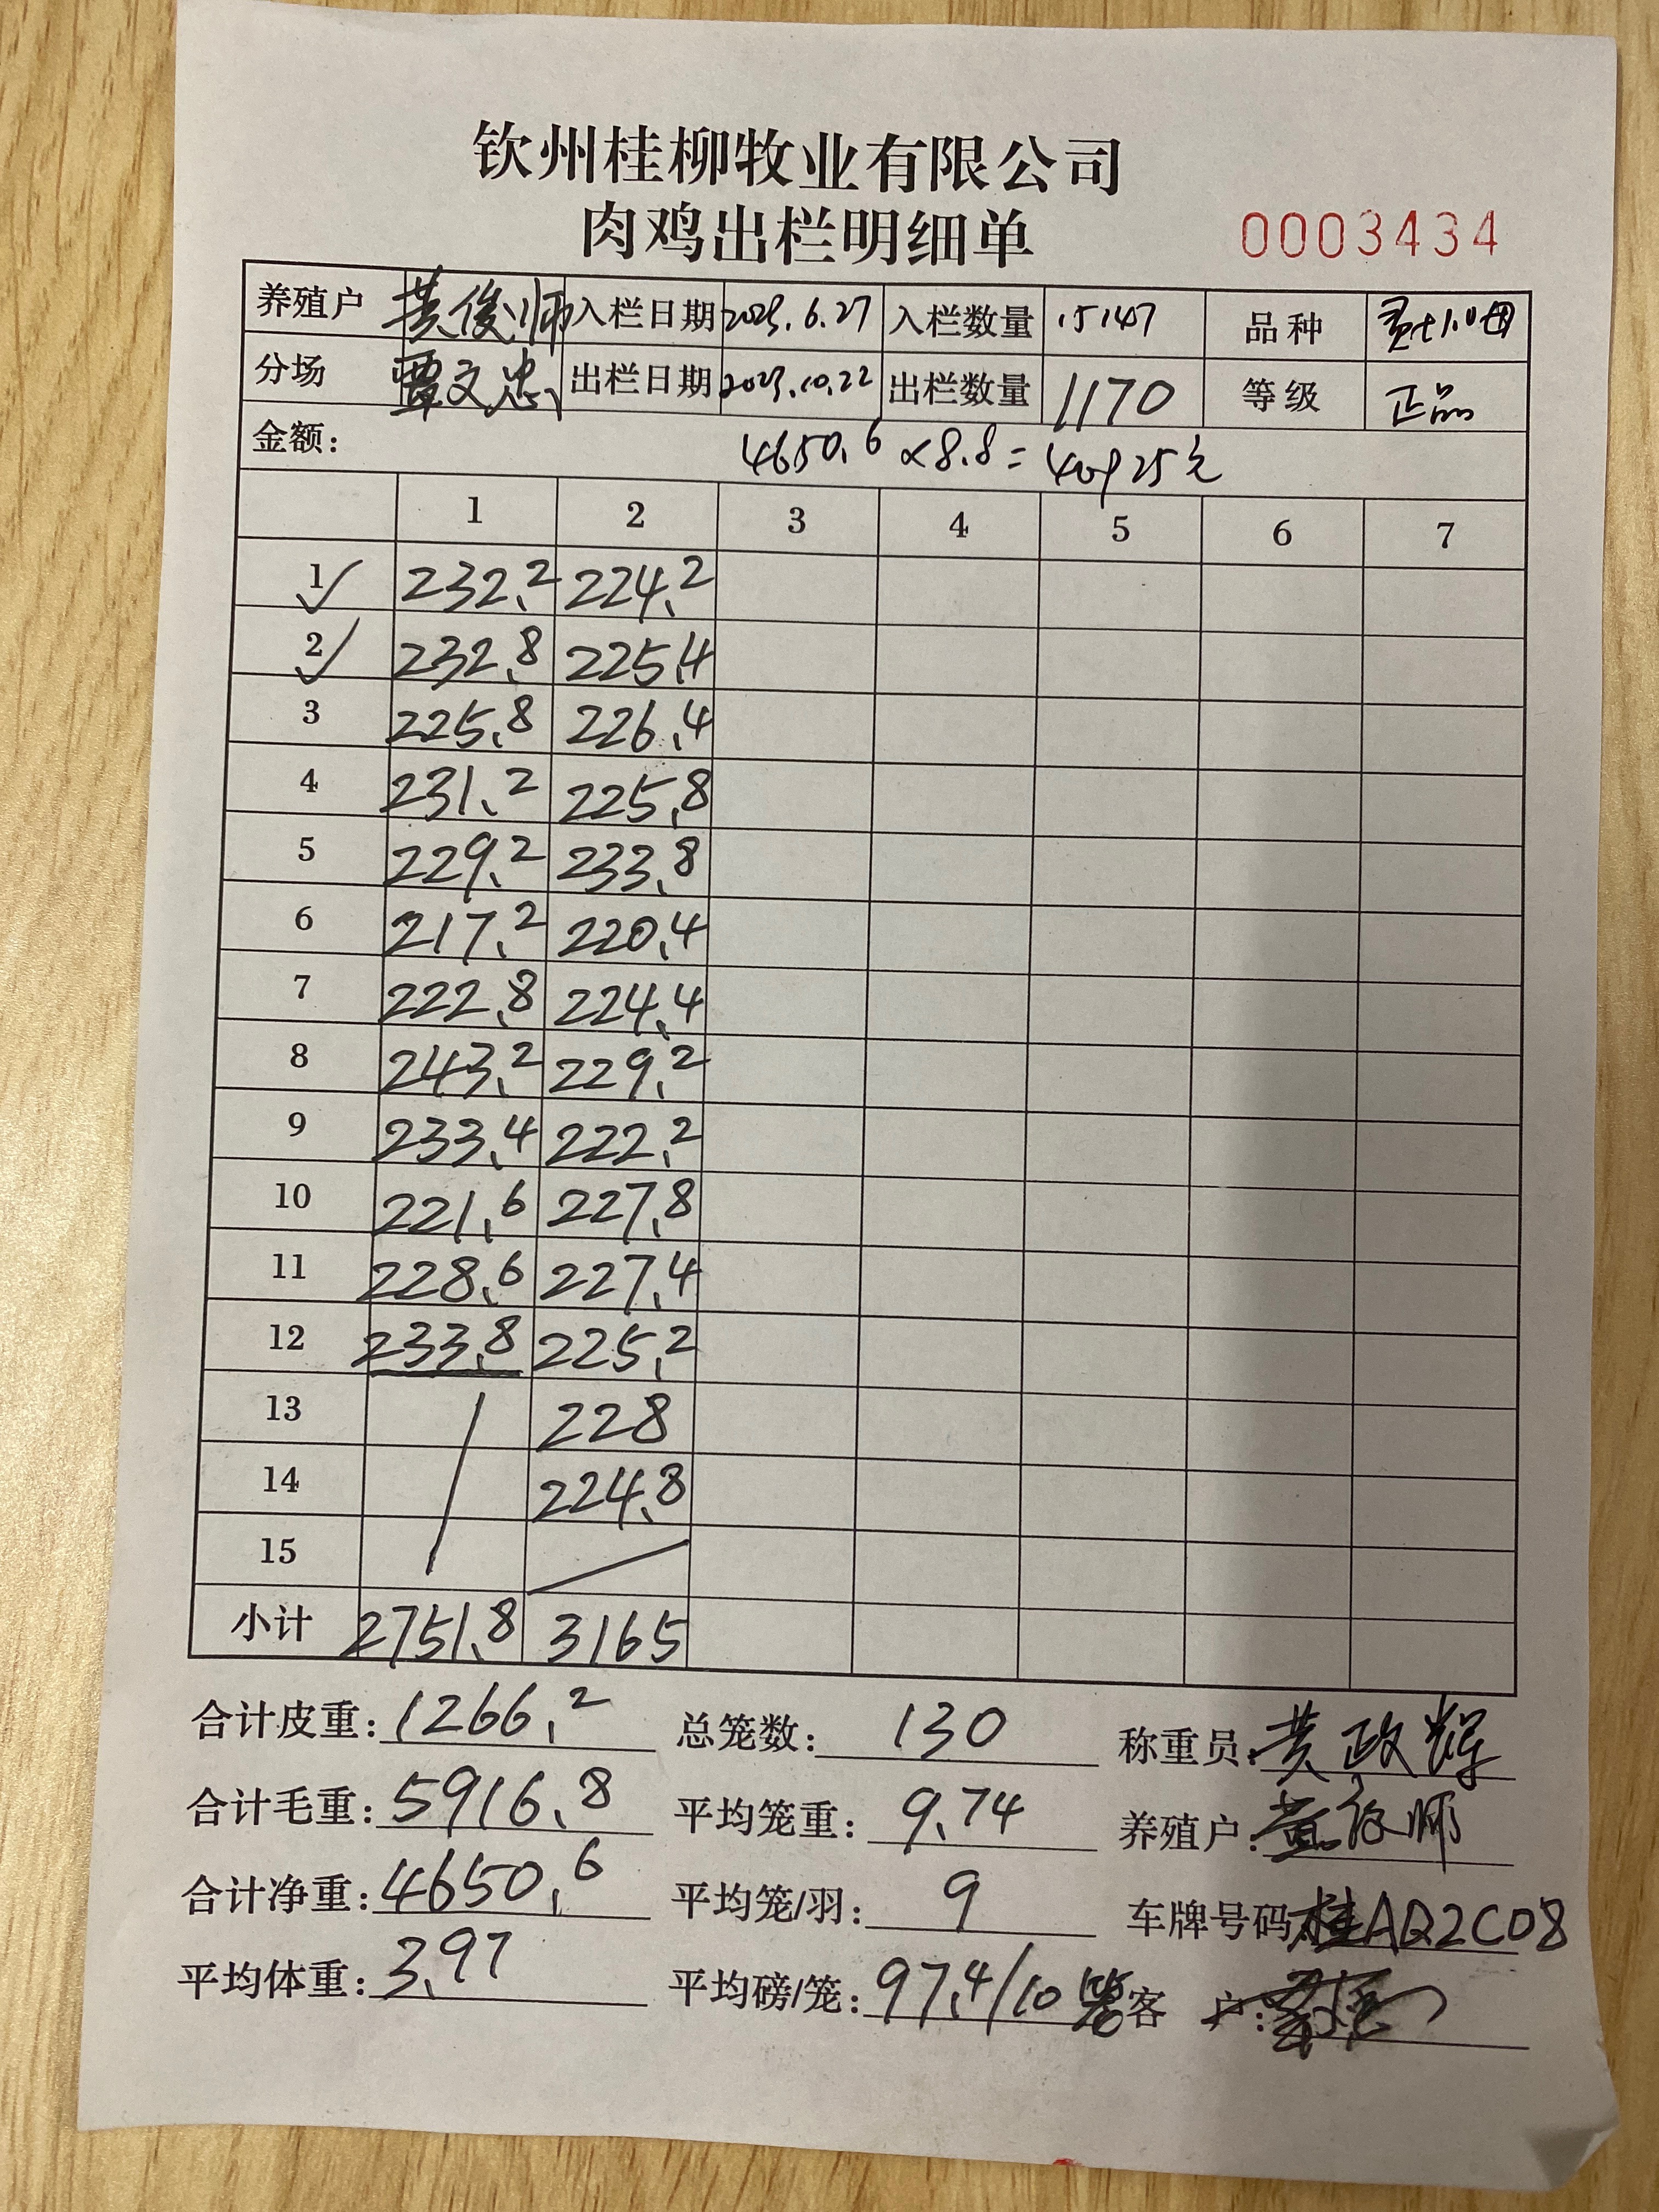 钦州桂柳牧业有限公司
肉鸡出栏明细单
0003434
养殖户 黄俊师 入栏日期 2023.6.27 入栏数量 15147 品种
分场 覃文忠 出栏日期 2023.10.22 出栏数量 1170 等级 正品
金额: 4650.6×8.8=40925元
1 2 3 4 5 6 7
1 ✓ 232.2 224.2
2 ✓ 232.8 225.4
3 225.8 226.4
4 231.2 225.8
5 229.2 233.8
6 217.2 220.4
7 222.8 224.4
8 243.2 229.2
9 233.4 222.2
10 221.6 227.8
11 228.6 227.4
12 233.8 225.2
13 228
14 224.8
15
小计 2751.8 3165
合计皮重: 1266.2 总笼数: 130 称重员: 黄政辉
合计毛重: 5916.8 平均笼重: 9.74 养殖户: 黄俊师
合计净重: 4650.6 平均笼/羽: 9 车牌号码: 桂AQ2C08
平均体重: 3.97 平均磅/笼: 97.4/10笼 客户: